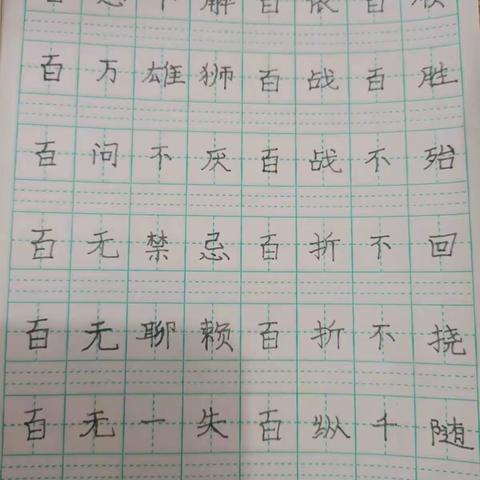 百思不解百依百顺
百万雄狮百战百胜
百问不厌百战不殆
百无禁忌百折不回
百无聊赖百折不挠
百无一失百纵千随